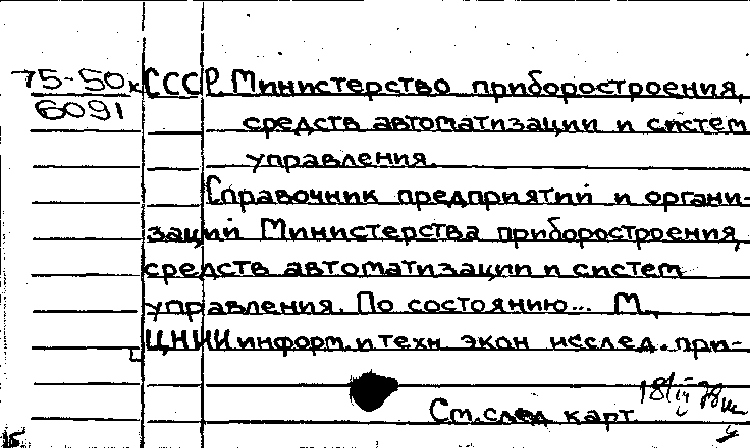 75-50к СССР Министерство приборостроения,
6091
средств автоматизации и систем
управления.
Справочник предприятий и органи-
заций Министерства приборостроения,
средств автоматизации и систем
управления. По состоянию... М.,
ЦНИИ информ. и техн экон исслед. при-
См. след карт.